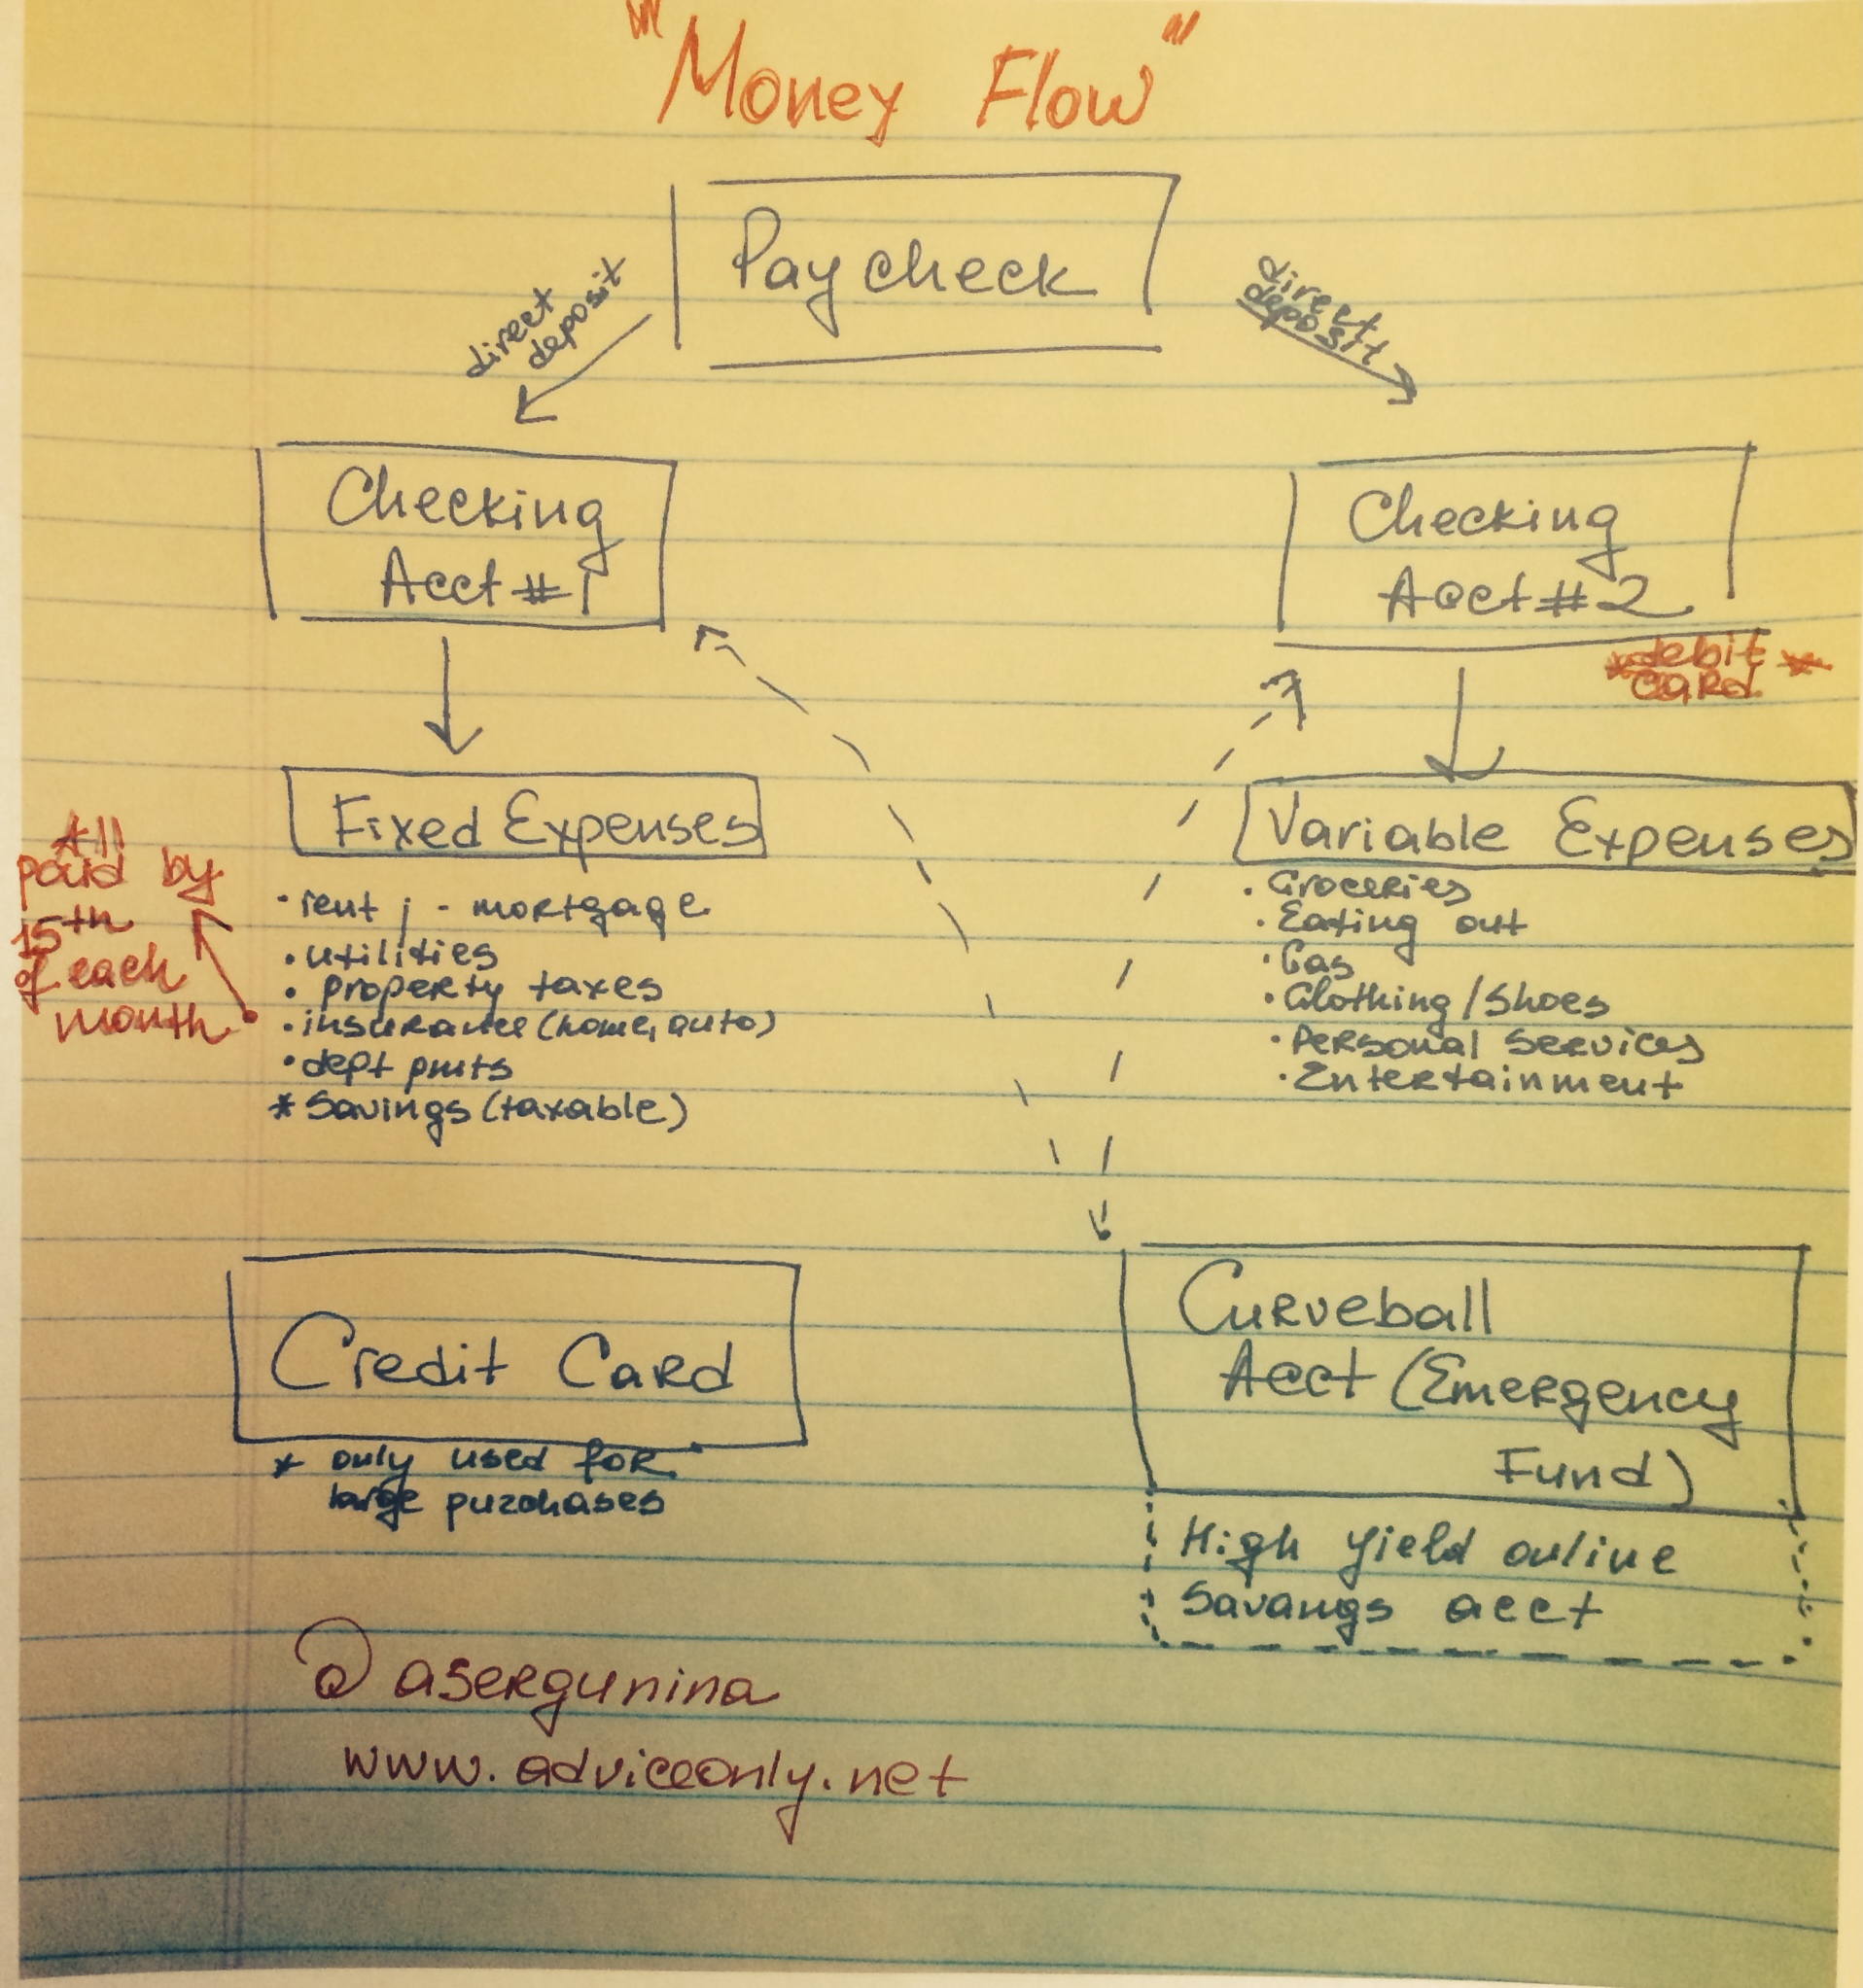 "Money Flow"
Paycheck
direct
deposit
direct
deposit
Checking
Acct #1
Checking
Acct #2
*debit *
card
Fixed Expenses
Variable Expenses
All
paid by
15th
of each
month
· rent ; - mortgage
· utilities
· property taxes
· insurance (home, auto)
· dept pmts
* Savings (taxable)
· Groceries
· Eating out
· Gas
· Clothing/Shoes
· Personal Services
· Entertainment
Credit Card
* only used for
large purchases
Curveball
Acct (Emergency
Fund)
High yield online
Savangs acct
@asergunina
www.adviceonly.net